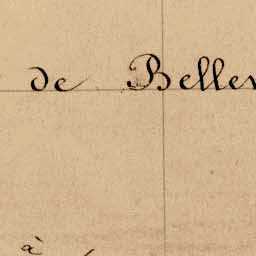 de Bellev
à